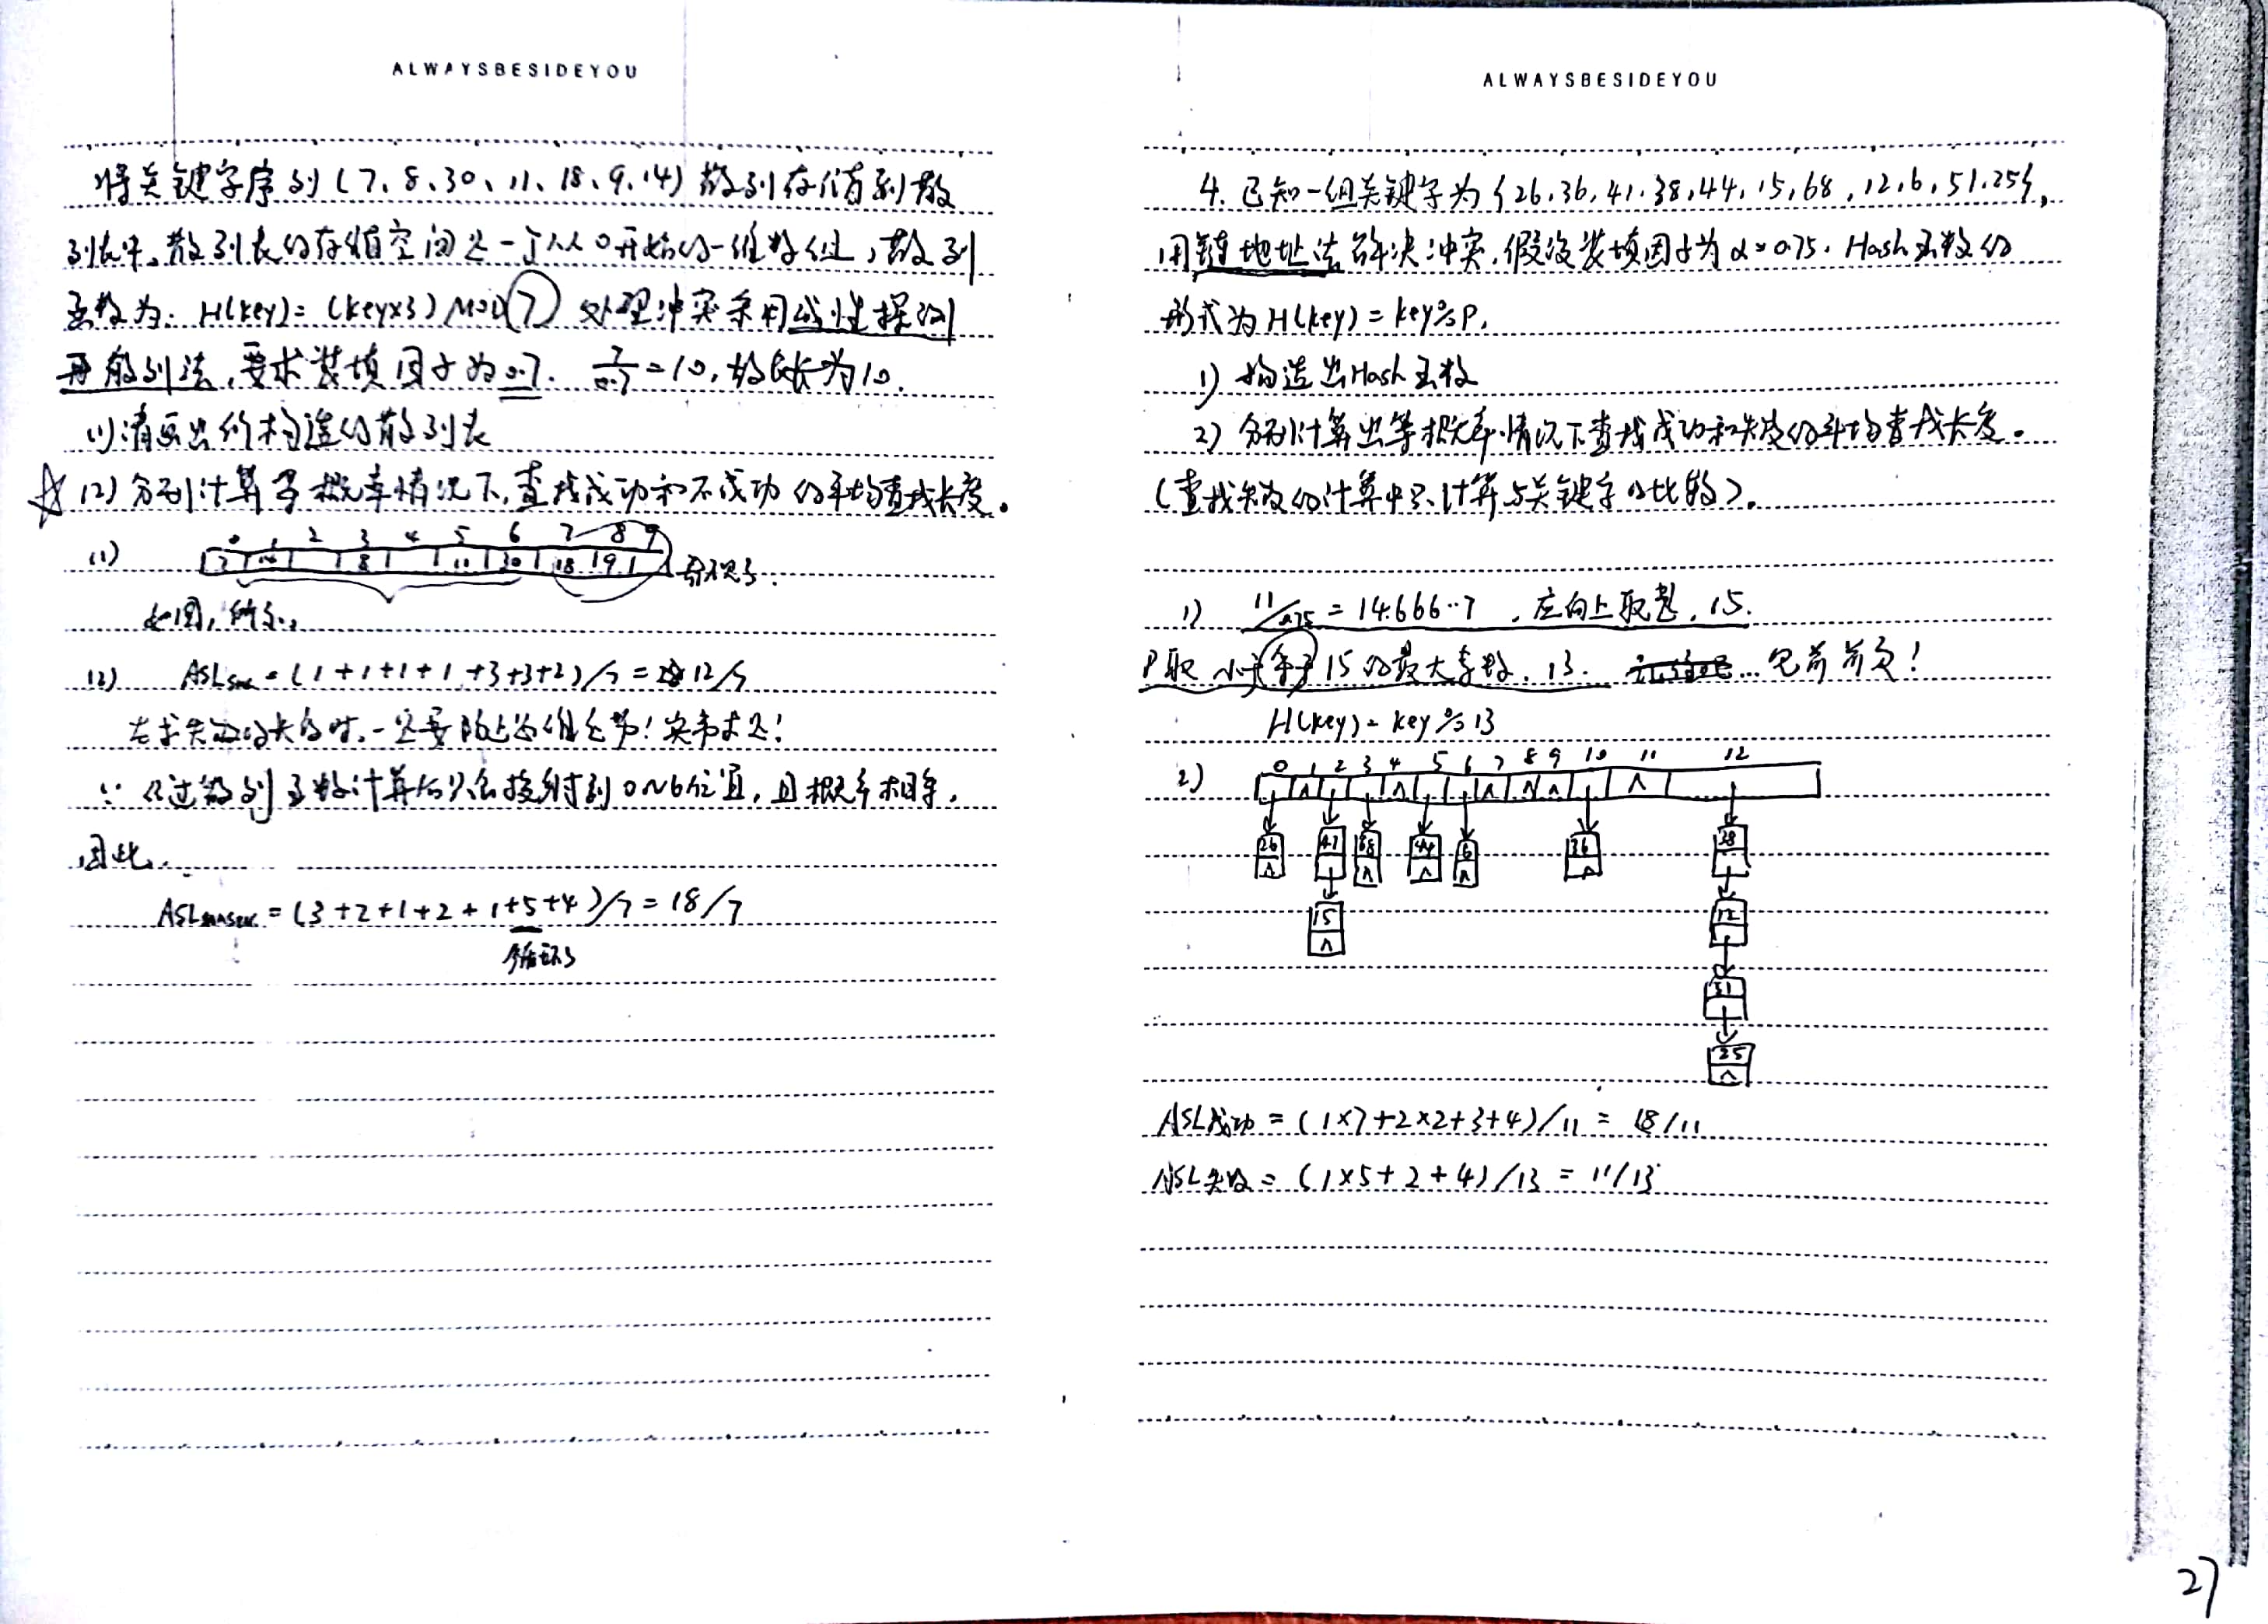 ALWAYSBESIDEYOU
将关键字序列(7、8、30、11、18、9、14)散列存储到散
列表中,散列表的存储空间是一个从0开始的一维数组,散列
函数为: H(key)=(key×3) MOD 7 处理冲突采用线性探测
再散列法,要求装填因子为0.7. 7/0.7=10,故表长为10.
(1)请画出所构造的散列表
☆(2)分别计算等概率情况下,查找成功和不成功的平均查找长度。
0 1 2 3 4 5 6 7 8 9
(1) 7 14 8 11 30 18 9
如图,所示。
(2) ASLsuc=(1+1+1+1+3+3+2)/7=12/7
在求失败的长度时,一定要
∵经过散列函数计算后只会映射到0~6位置,且概率相等,
因此.
ASLunsuc=(3+2+1+2+1+5+4)/7=18/7
ALWAYSBESIDEYOU
4. 已知一组关键字为{26,36,41,38,44,15,68,12,6,51,25},
用链地址法解决冲突,假设装填因子为α=0.75. Hash函数的
形式为H(key)=key%P,
1) 构造出Hash函数
2) 分别计算出等概率情况下查找成功和失败的平均查找长度。
(查找失败的计算中只计算与关键字的比较)。
1) 11/0.75=14.666..7,应向上取整,15.
P取小于(等于)15的最大素数,13. 见前前页!
H(key)=key%13
0 1 2 3 4 5 6 7 8 9 10 11 12
2) ∧ ∧ ∧ ∧ ∧ ∧
26 41 68 44 6 36 38
∧ ∧ ∧ ∧ ∧
15 12
∧
51
25
∧
ASL成功=(1×7+2×2+3+4)/11=18/11
ASL失败=(1×5+2+4)/13=11/13
27